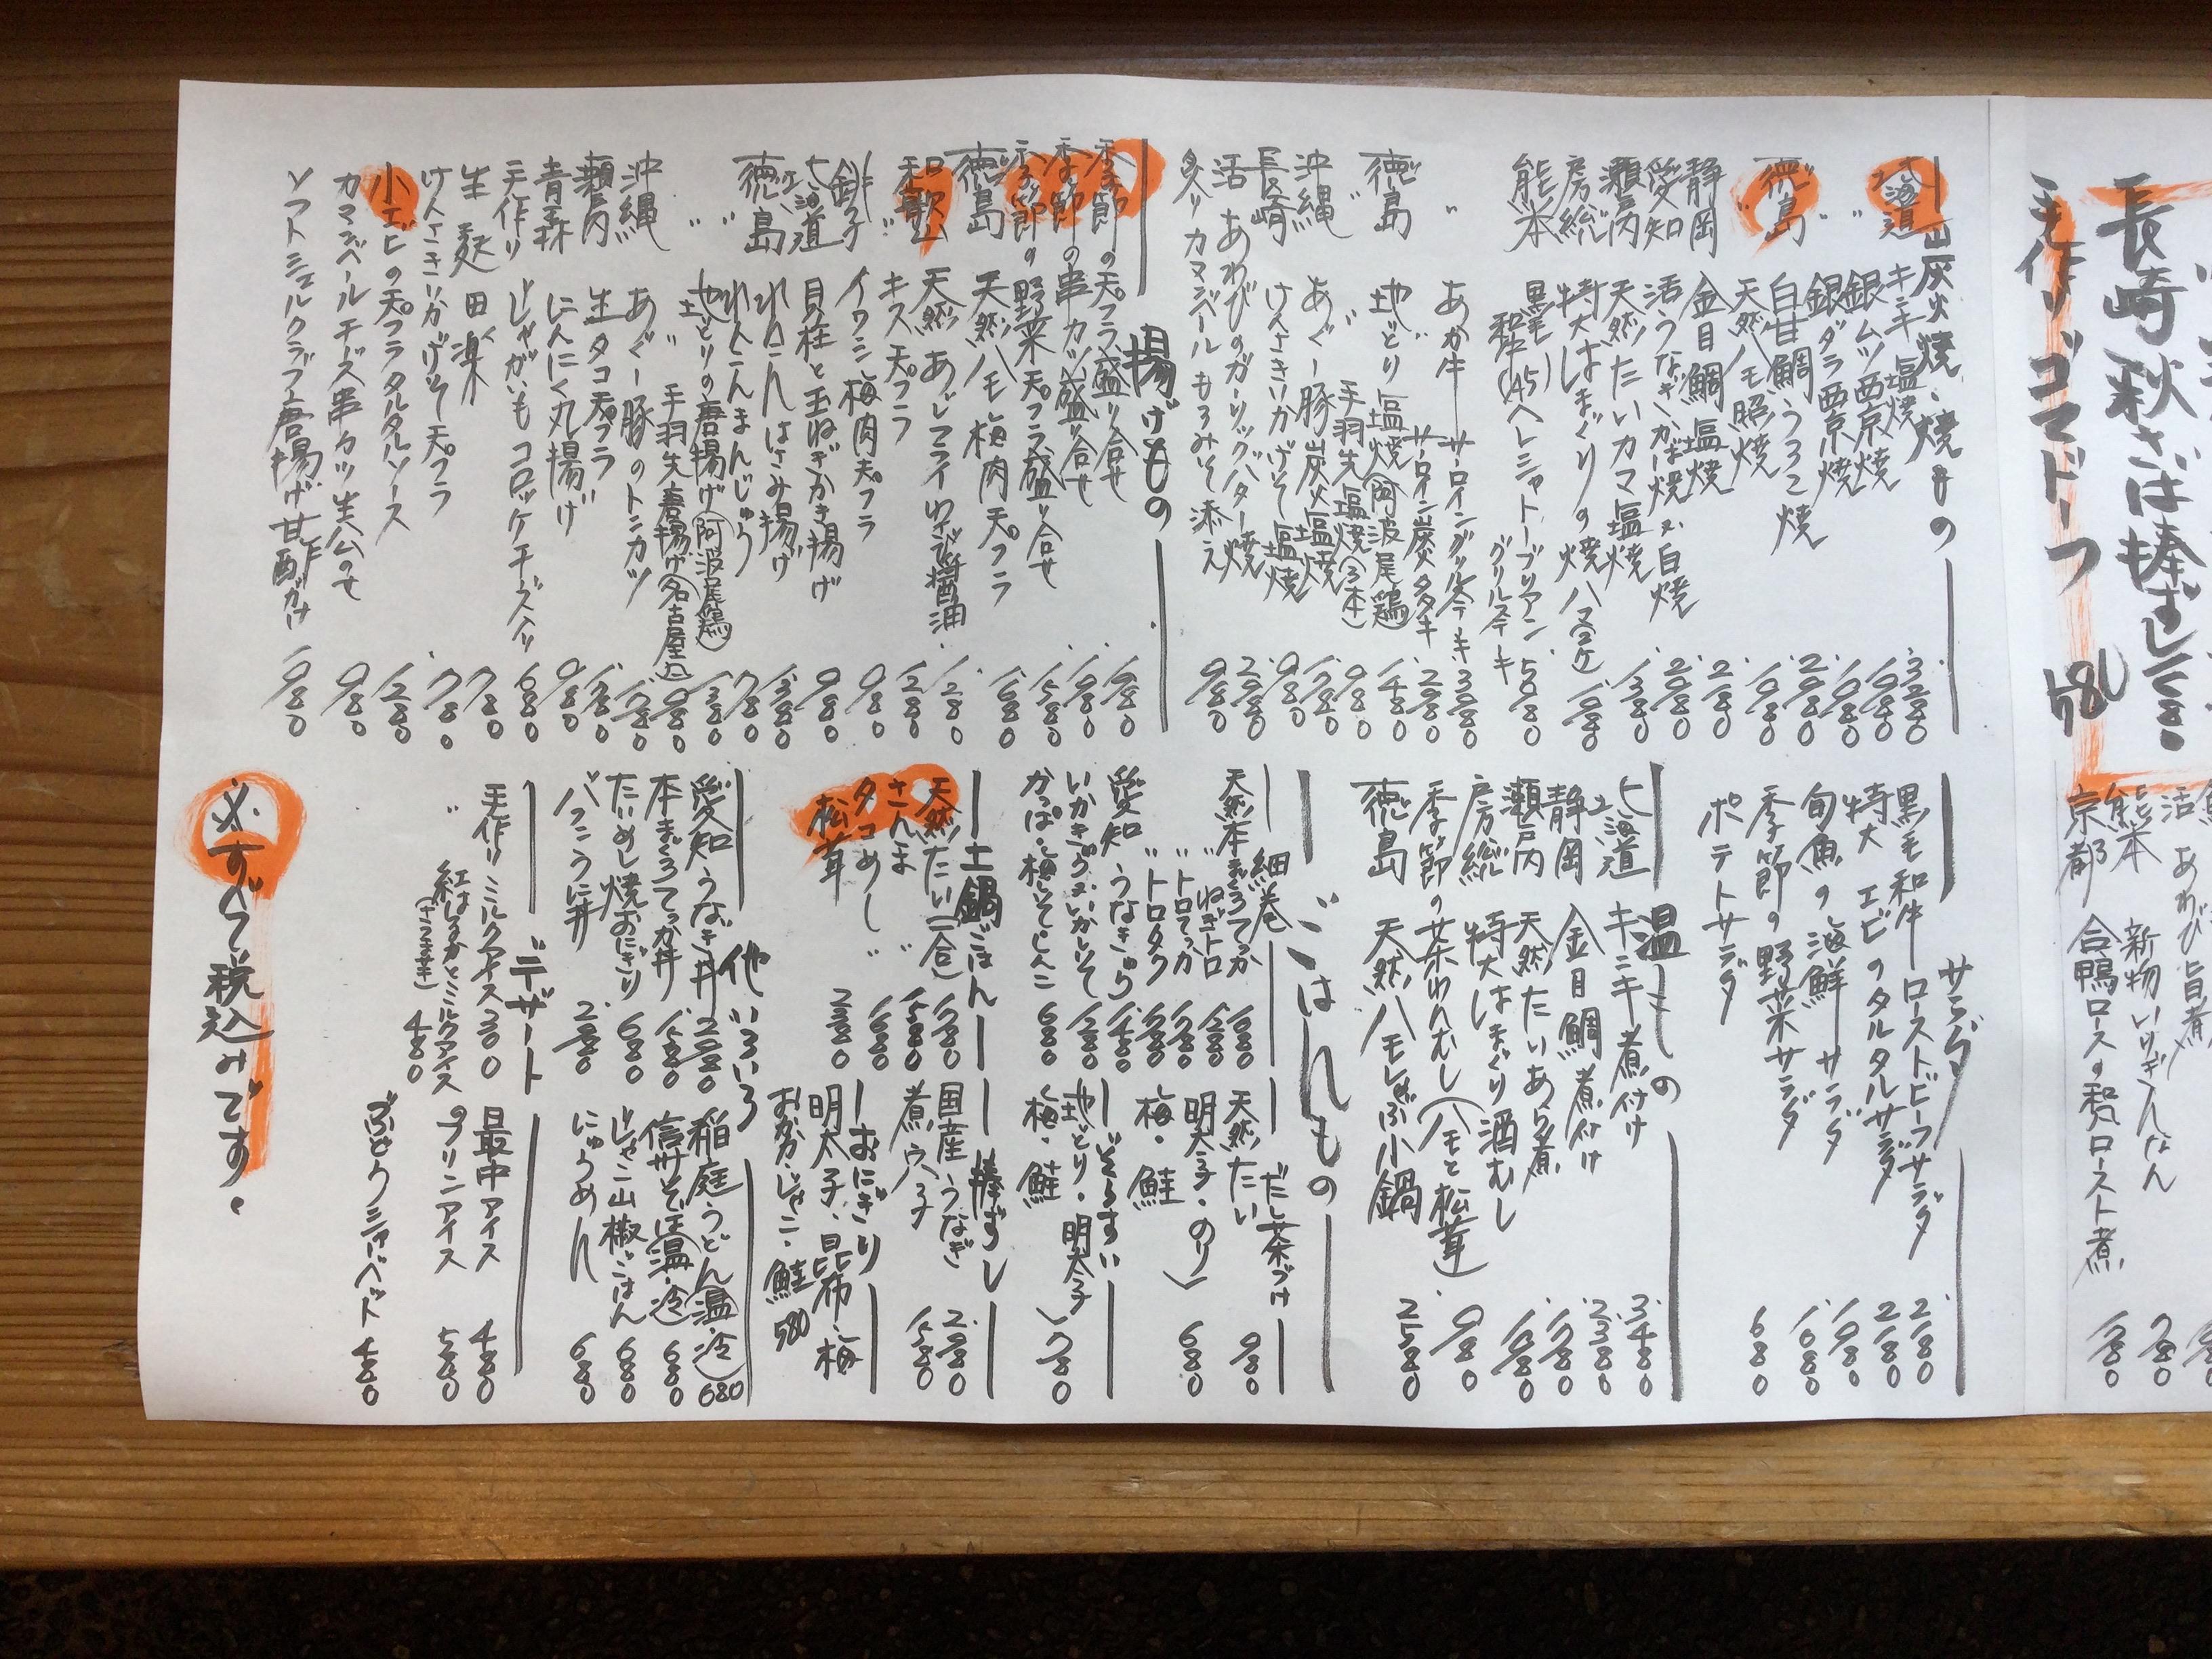 長崎 秋さば棒ずし
手作りゴマドーフ 580
活 あわび旨煮
熊本 新物いりぎんなん 780
京都 合鴨ロースの和ロースト煮
炭火焼・焼もの
北海道 キンキ塩焼 3280
〃 銀ムツ西京焼 1980
銀ダラ西京焼 1980
徳島 白甘鯛うろこ焼 2980
〃 天然ハモ照焼 1980
静岡 金目鯛塩焼 2180
愛知 活うなぎかば焼又は白焼 2980
瀬戸内 天然たいカマ塩焼 1380
房総 特大はまぐりの焼ハマ(2ケ)
熊本 黒毛和牛(A5)ヘレシャトーブリアングリルステーキ 5980
〃 あか牛サーロイングリルステーキ 3280
サーロイン炭火タタキ 2980
徳島 地どり塩焼(阿波尾鶏) 1480
〃 手羽先塩焼(3本) 980
沖縄 あぐー豚炭火塩焼
長崎 けんさきいかげそ塩焼 980
活 あわびのガーリックバター焼 2980
炙りカマンベールもろみそ添え 980
揚げもの
季節の天プラ盛り合せ 1980
季節の串カツ盛り合せ 1980
季節の野菜天プラ盛り合せ 1580
徳島 天然ハモ梅肉天プラ 1680
和歌山 天然あじフライわさび醤油 1280
〃 キス天プラ 1280
銚子 イワシ梅肉天プラ 980
北海道 貝柱と玉ねぎかき揚げ 980
徳島 れんこんはさみ揚げ
〃 れんこんまんじゅう 780
〃 地どりの唐揚げ(阿波尾鶏) 1380
〃 手羽先唐揚げ(名古屋) 980
沖縄 あぐー豚のトンカツ
瀬戸内 生タコ天プラ
青森 にんにく丸揚げ 980
手作り じゃがいもコロッケチーズ入り 680
生麩田楽 780
けんさきいかげそ天プラ 780
小エビの天プラタルタルソース 1280
カマンベールチーズ串カツ生ハムのせ 980
ソフトシェルクラブ唐揚げ甘酢がけ 1980
サラダ
黒毛和牛ローストビーフサラダ 2180
特大エビのタルタルサラダ 2180
旬魚の海鮮サラダ 1980
季節の野菜サラダ 1080
ポテトサラダ 680
温もの
北海道 キンキ煮付け 3480
静岡 金目鯛煮付け 2380
瀬戸内 天然たいあら煮 1780
房総 特大はまぐり酒むし 1980
季節の茶わんむし(ハモと松茸) 980
徳島 天然ハモしゃぶ小鍋 2580
ごはんもの
細巻
天然本まぐろてっか 1680
〃 ねぎトロ 1280
〃 トロてっか
〃 トロタク
愛知 うなきゅう 1480
いかきゅう又はいかしそ 1280
かっぱ・梅しそ・しんこ 680
だし茶づけ
天然たい 980
明太子・のり
梅・鮭 680
ぞうすい
地どり・明太子
梅・鮭 780
土鍋ごはん
天然たい(一合) 1780
さんま 〃 1580
タコめし 〃 1680
松茸 2980
棒ずし
国産うなぎ 2980
煮穴子 1580
おにぎり
明太子、昆布・梅
おかか・じゃこ・鮭 580
他いろいろ
愛知うなぎ丼 2980
本まぐろてっか丼 1580
たいめし焼おにぎり 680
バフンうに丼 2980
稲庭うどん(温・冷) 680
信州そば(温・冷) 680
じゃこ山椒ごはん 680
にゅうめん 680
デザート
手作りミルクアイス 300
〃 紅はるかとミルクアイス(さつま芋) 480
最中アイス 480
プリンアイス 580
ぶどうシャーベット 480
※すべて税込みです。